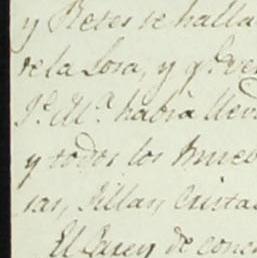 y Reses se halla
de la Losa, y q.e ve
J.e M.a había llev
y todos los mueb
sas, sillas, crista
El Quey de conc